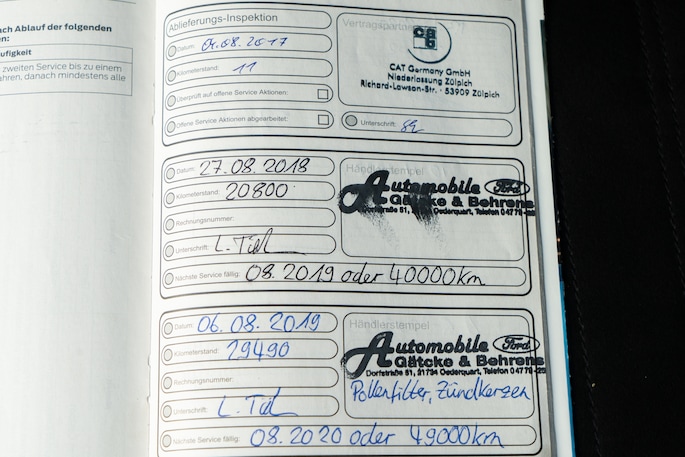 ach Ablauf der folgenden
en:
ufigkeit
zweiten Service bis zu einem
ahren, danach mindestens alle
Ablieferungs-Inspektion
Datum: 01.08.2017
Kilometerstand: 11
Überprüft auf offene Service Aktionen:
Offene Service Aktionen abgearbeitet:
Vertragspartner
CAT Germany GmbH
Niederlassung Zülpich
Richard-Lawson-Str. · 53909 Zülpich
Unterschrift:
Datum: 27.08.2018
Kilometerstand: 20800
Rechnungsnummer:
Unterschrift:
Händlerstempel
Automobile Ford
Gätcke & Behrens
Dorfstraße 51, Oederquart, Telefon 04779-
Nächste Service fällig: 08.2019 oder 40000km
Datum: 06.08.2019
Kilometerstand: 29490
Rechnungsnummer:
Unterschrift:
Händlerstempel
Automobile Ford
Gätcke & Behrens
Dorfstraße 51, 21734 Oederquart, Telefon 04779-
Pollenfilter, Zündkerzen
Nächste Service fällig: 08.2020 oder 49000km